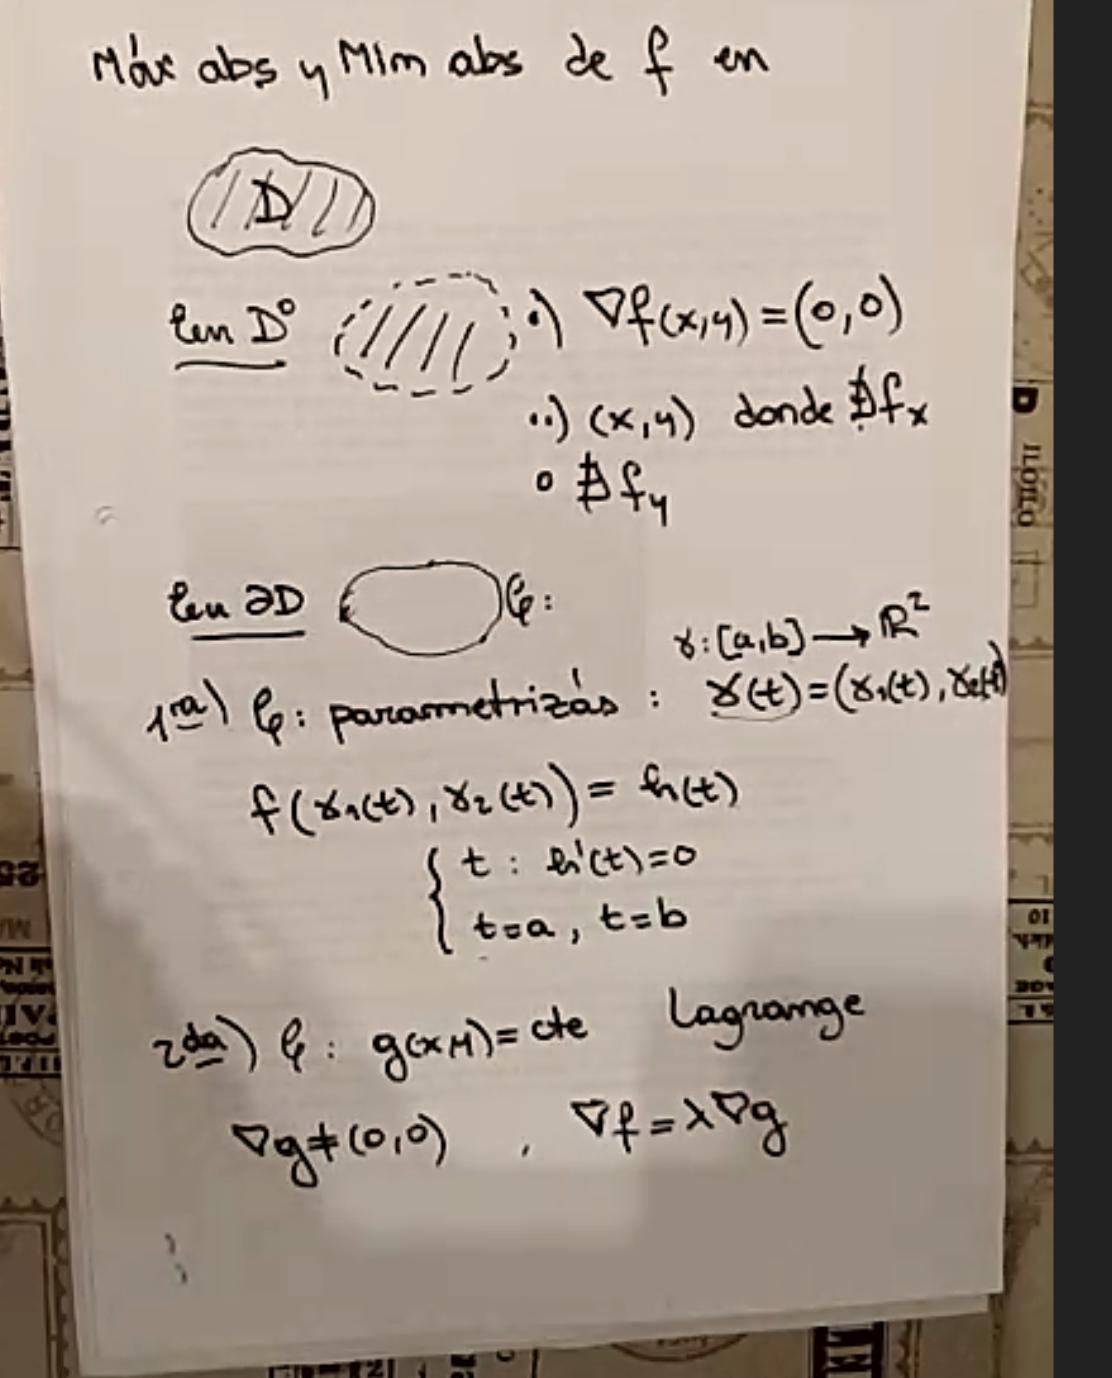 Máx abs y Mím abs de f en
D
en D° •) ∇f(x,y)=(0,0)
••) (x,y) donde ∄fx
o ∄fy
en ∂D 𝒞:
γ:[a,b]→ℝ²
1ra) 𝒞: parametrizás : γ(t)=(γ₁(t),γ₂(t))
f(γ₁(t),γ₂(t))= h(t)
{ t : h'(t)=0
t=a, t=b
2da) 𝒞: g(x,y)=cte Lagrange
∇g≠(0,0) , ∇f=λ∇g
D
ILOILO
10